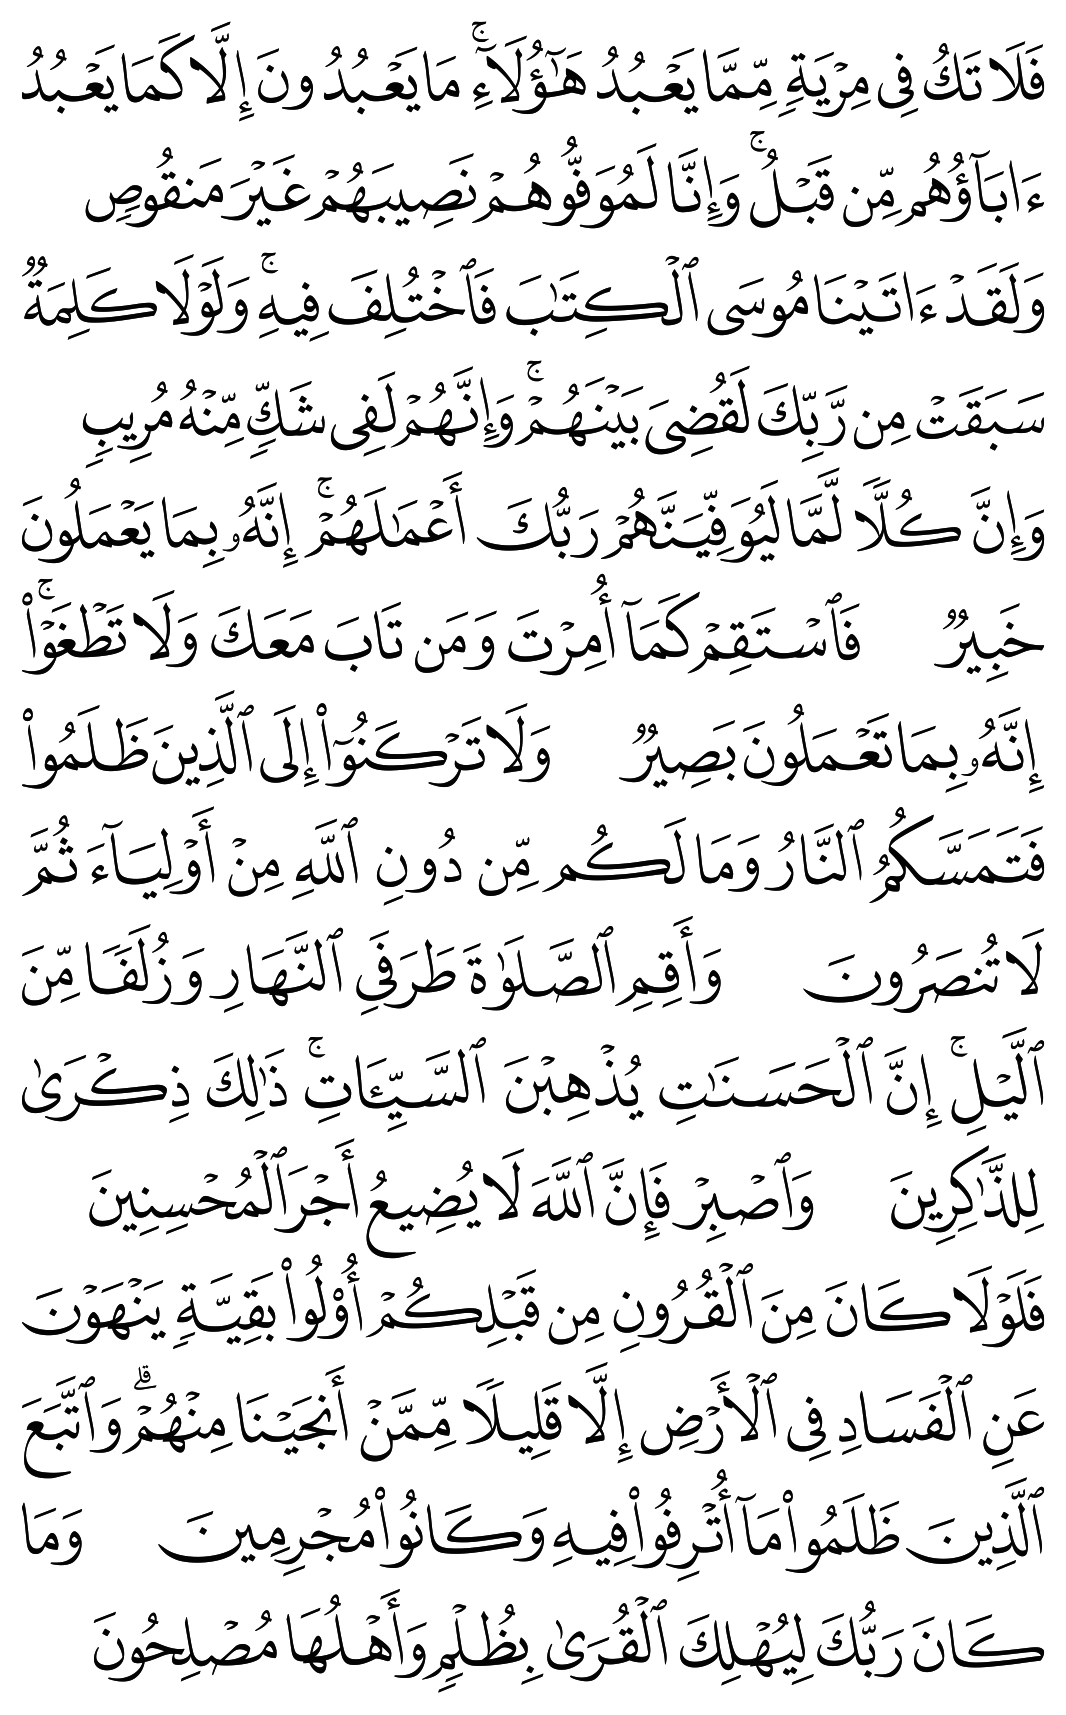 فَلَا تَكُ فِى مِرْيَةٍۢ مِّمَّا يَعْبُدُ هَـٰٓؤُلَآءِ ۚ مَا يَعْبُدُونَ إِلَّا كَمَا يَعْبُدُ
ءَابَآؤُهُم مِّن قَبْلُ ۚ وَإِنَّا لَمُوَفُّوهُمْ نَصِيبَهُمْ غَيْرَ مَنقُوصٍۢ
وَلَقَدْ ءَاتَيْنَا مُوسَى ٱلْكِتَـٰبَ فَٱخْتُلِفَ فِيهِ ۚ وَلَوْلَا كَلِمَةٌۭ
سَبَقَتْ مِن رَّبِّكَ لَقُضِىَ بَيْنَهُمْ ۚ وَإِنَّهُمْ لَفِى شَكٍّۢ مِّنْهُ مُرِيبٍۢ
وَإِنَّ كُلًّۭا لَّمَّا لَيُوَفِّيَنَّهُمْ رَبُّكَ أَعْمَـٰلَهُمْ ۚ إِنَّهُۥ بِمَا يَعْمَلُونَ
خَبِيرٌۭ فَٱسْتَقِمْ كَمَآ أُمِرْتَ وَمَن تَابَ مَعَكَ وَلَا تَطْغَوْا۟ ۚ
إِنَّهُۥ بِمَا تَعْمَلُونَ بَصِيرٌۭ وَلَا تَرْكَنُوٓا۟ إِلَى ٱلَّذِينَ ظَلَمُوا۟
فَتَمَسَّكُمُ ٱلنَّارُ وَمَا لَكُم مِّن دُونِ ٱللَّهِ مِنْ أَوْلِيَآءَ ثُمَّ
لَا تُنصَرُونَ وَأَقِمِ ٱلصَّلَوٰةَ طَرَفَىِ ٱلنَّهَارِ وَزُلَفًۭا مِّنَ
ٱلَّيْلِ ۚ إِنَّ ٱلْحَسَنَـٰتِ يُذْهِبْنَ ٱلسَّيِّـَٔاتِ ۚ ذَٰلِكَ ذِكْرَىٰ
لِلذَّٰكِرِينَ وَٱصْبِرْ فَإِنَّ ٱللَّهَ لَا يُضِيعُ أَجْرَ ٱلْمُحْسِنِينَ
فَلَوْلَا كَانَ مِنَ ٱلْقُرُونِ مِن قَبْلِكُمْ أُو۟لُوا۟ بَقِيَّةٍۢ يَنْهَوْنَ
عَنِ ٱلْفَسَادِ فِى ٱلْأَرْضِ إِلَّا قَلِيلًۭا مِّمَّنْ أَنجَيْنَا مِنْهُمْ ۗ وَٱتَّبَعَ
ٱلَّذِينَ ظَلَمُوا۟ مَآ أُتْرِفُوا۟ فِيهِ وَكَانُوا۟ مُجْرِمِينَ وَمَا
كَانَ رَبُّكَ لِيُهْلِكَ ٱلْقُرَىٰ بِظُلْمٍۢ وَأَهْلُهَا مُصْلِحُونَ